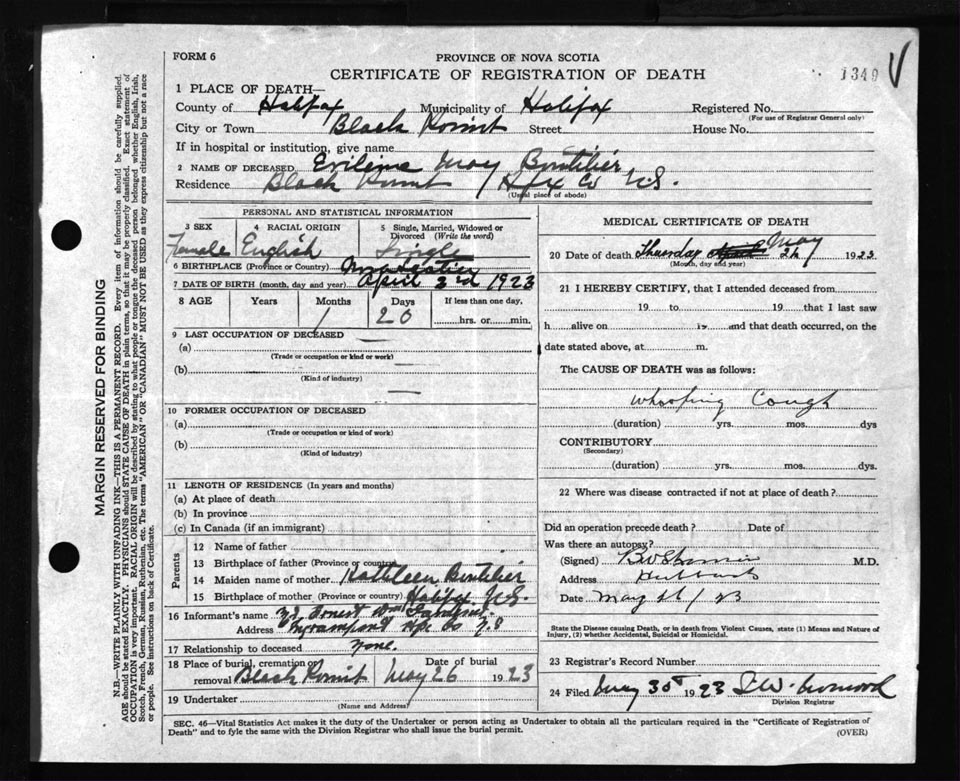 FORM 6
PROVINCE OF NOVA SCOTIA
CERTIFICATE OF REGISTRATION OF DEATH
1349
1 PLACE OF DEATH—
County of Halifax Municipality of Halifax Registered No.
(For use of Registrar General only)
City or Town Black Point Street House No.
If in hospital or institution, give name
2 NAME OF DECEASED May Boutilier
Residence Black Point Hfx Co N.S.
(Usual place of abode)
PERSONAL AND STATISTICAL INFORMATION
3 SEX 4 RACIAL ORIGIN 5 Single, Married, Widowed or Divorced (Write the word)
Female English Single
6 BIRTHPLACE (Province or Country) Nova Scotia
7 DATE OF BIRTH (month, day and year) April 3rd 1923
8 AGE Years Months Days If less than one day,
1 20 hrs. or min.
9 LAST OCCUPATION OF DECEASED
(a)
(Trade or occupation or kind of work)
(b)
(Kind of industry)
10 FORMER OCCUPATION OF DECEASED
(a)
(Trade or occupation or kind of work)
(b)
(Kind of industry)
11 LENGTH OF RESIDENCE (In years and months)
(a) At place of death
(b) In province
(c) In Canada (if an immigrant)
Parents
12 Name of father
13 Birthplace of father (Province or country)
14 Maiden name of mother Kathleen Boutilier
15 Birthplace of mother (Province or country) Halifax N.S.
16 Informant's name Ernest
Address Hfx Co N.S
17 Relationship to deceased none.
18 Place of burial, cremation or removal Black Point Date of burial May 26 1923
19 Undertaker
(Name and Address)
MEDICAL CERTIFICATE OF DEATH
20 Date of death Thursday May 24 1923
(Month, day and year)
21 I HEREBY CERTIFY, that I attended deceased from
19 to 19 that I last saw
h alive on 19 and that death occurred, on the
date stated above, at m.
The CAUSE OF DEATH was as follows:
Whooping Cough
(duration) yrs. mos. dys
CONTRIBUTORY
(Secondary)
(duration) yrs. mos. dys.
22 Where was disease contracted if not at place of death?
Did an operation precede death? Date of
Was there an autopsy?
(Signed) M.D.
Address Hubbards
Date May /23
State the Disease causing Death, or in death from Violent Causes, state (1) Means and Nature of Injury, (2) whether Accidental, Suicidal or Homicidal.
23 Registrar's Record Number
24 Filed May 30th 1923
Division Registrar
SEC. 46—Vital Statistics Act makes it the duty of the Undertaker or person acting as Undertaker to obtain all the particulars required in the "Certificate of Registration of
Death" and to fyle the same with the Division Registrar who shall issue the burial permit. (OVER)
MARGIN RESERVED FOR BINDING
N.B.—WRITE PLAINLY WITH UNFADING INK—THIS IS A PERMANENT RECORD. Every item of information should be carefully supplied.
AGE should be stated EXACTLY. PHYSICIANS should STATE CAUSE OF DEATH in plain terms, so that it may be properly classified. Exact statement of
OCCUPATION is very important. RACIAL ORIGIN will be described by stating to what people or tongue the deceased person belonged whether English, Irish,
Scotch, French, German, Russian, Ruthenian, etc. The terms "AMERICAN" OR "CANADIAN" MUST NOT BE USED as they express citizenship but not a race
or people. See instructions on back of Certificate.